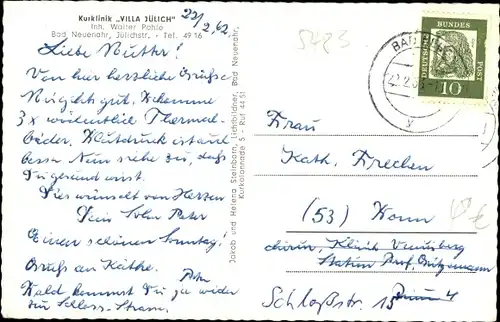 Kurklinik „VILLA JÜLICH"
Inh. Walter Pohle
Bad Neuenahr, Jülichstr. • Tel. 49 16
22/2. 62.
Liebe Mutter!
Von hier herzliche Grüße
Mir geht's gut. Bekomme
3 x wöchentlich Thermal-
bäder. Blutdruck ist auch
besser. Nun siehe zu, daß
Du gesund wirst.
Dies wünscht von Herzen
Dein Sohn Peter
Einen schönen Sonntag!
Gruß an Käthe.
Peter
Bald kommst Du ja wieder
zur Schloss-Strasse.
Jakob und Helena Steinborn, Lichtbildner, Bad Neuenahr,
Kurkolonnade 5 - Ruf 44 51
5483
BAD
22.2.62
DEUTSCHE
BUNDES
POST
10
Frau
Kath. Frechen
(53) Bonn
Klinik Venusberg
Station Prof.
Schloßstr. 15